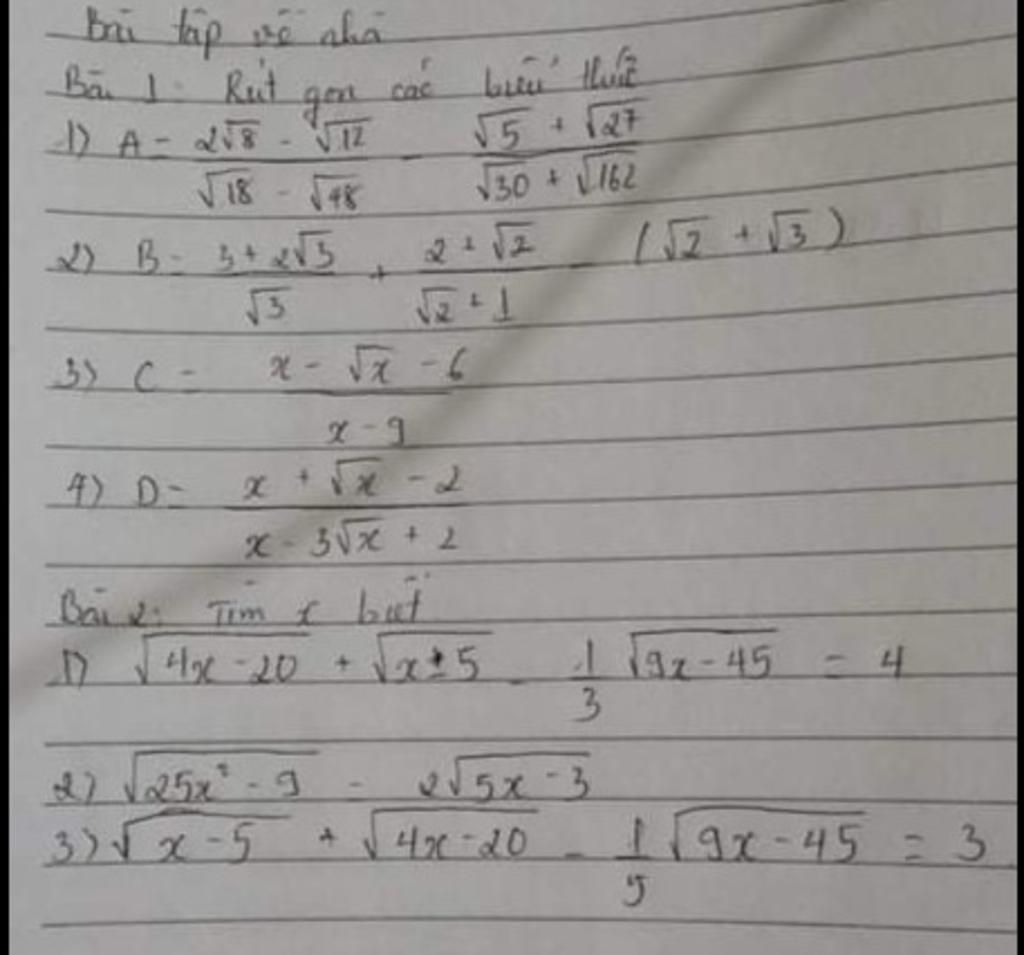 Bài tập về nhà
Bài 1: Rút gọn các biểu thức
1) A = (2√8 - √12)/(√18 - √48) - (√5 + √27)/(√30 + √162)
2) B = (3 + 2√3)/√3 + (2 + √2)/(√2 + 1) - (√2 + √3)
3) C = (x - √x - 6)/(x - 9)
4) D = (x + √x - 2)/(x - 3√x + 2)
Bài 2: Tìm x biết
1) √(4x - 20) + √(x - 5) - 1/3 √(9x - 45) = 4
2) √(25x² - 9) = 2√(5x - 3)
3) √(x - 5) + √(4x - 20) - 1/5 √(9x - 45) = 3